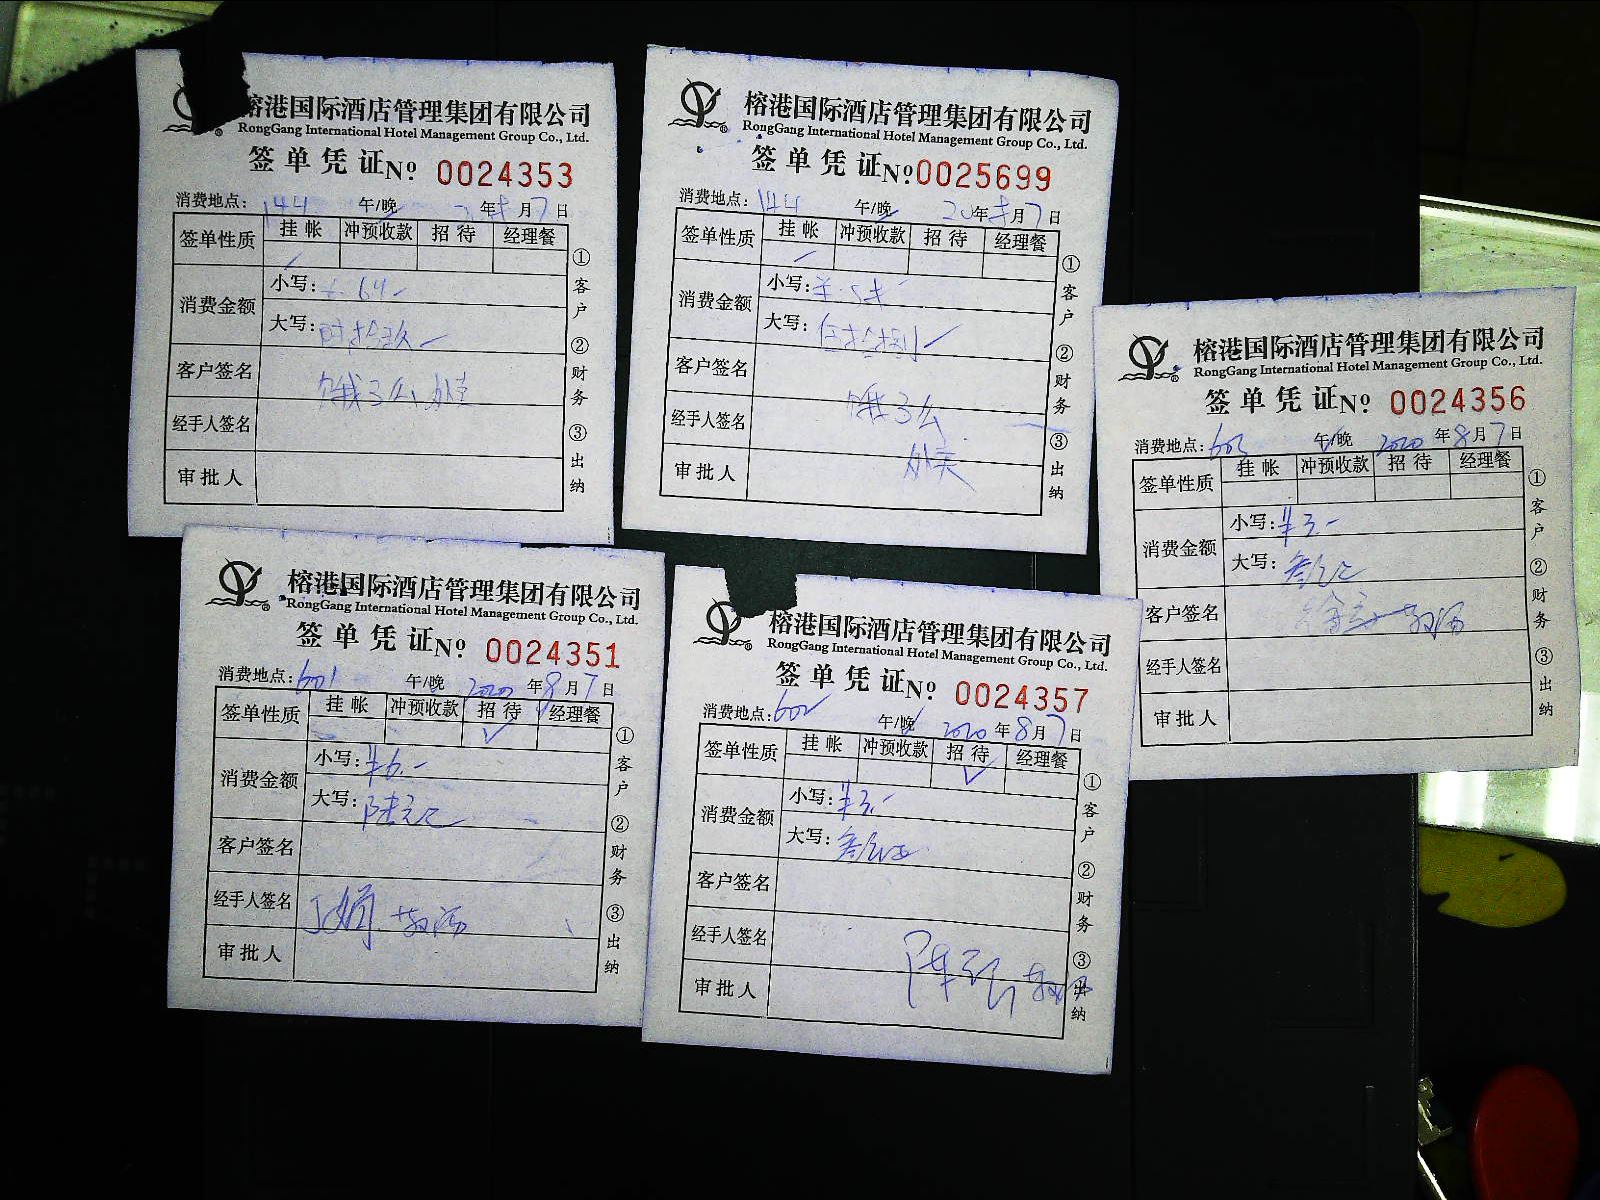 榕港国际酒店管理集团有限公司
RongGang International Hotel Management Group Co., Ltd.
签单凭证 Nº 0024353
消费地点: 144 午/晚 年 月 7 日
签单性质 挂帐 冲预收款 招待 经理餐
消费金额 小写:
大写:
客户签名 饿了么外卖
经手人签名
审批人
①客户 ②财务 ③出纳
榕港国际酒店管理集团有限公司
RongGang International Hotel Management Group Co., Ltd.
签单凭证 Nº 0025699
消费地点: 144 午/晚 20 年 月 7 日
签单性质 挂帐 冲预收款 招待 经理餐
消费金额 小写:
大写:
客户签名 饿了么
经手人签名
审批人 外卖
①客户 ②财务 ③出纳
榕港国际酒店管理集团有限公司
RongGang International Hotel Management Group Co., Ltd.
签单凭证 Nº 0024356
消费地点: 午/晚 2020 年 8 月 7 日
签单性质 挂帐 冲预收款 招待 经理餐
消费金额 小写: ¥3.-
大写: 叁元
客户签名
经手人签名
审批人
①客户 ②财务 ③出纳
榕港国际酒店管理集团有限公司
RongGang International Hotel Management Group Co., Ltd.
签单凭证 Nº 0024351
消费地点: 601 午/晚 2020 年 8 月 7 日
签单性质 挂帐 冲预收款 招待 经理餐
消费金额 小写: ¥6.-
大写: 陆元
客户签名
经手人签名
审批人
①客户 ②财务 ③出纳
榕港国际酒店管理集团有限公司
RongGang International Hotel Management Group Co., Ltd.
签单凭证 Nº 0024357
消费地点: 602 午/晚 2020 年 8 月 7 日
签单性质 挂帐 冲预收款 招待 经理餐
消费金额 小写: ¥3.-
大写: 叁元
客户签名
经手人签名
审批人
①客户 ②财务 ③出纳